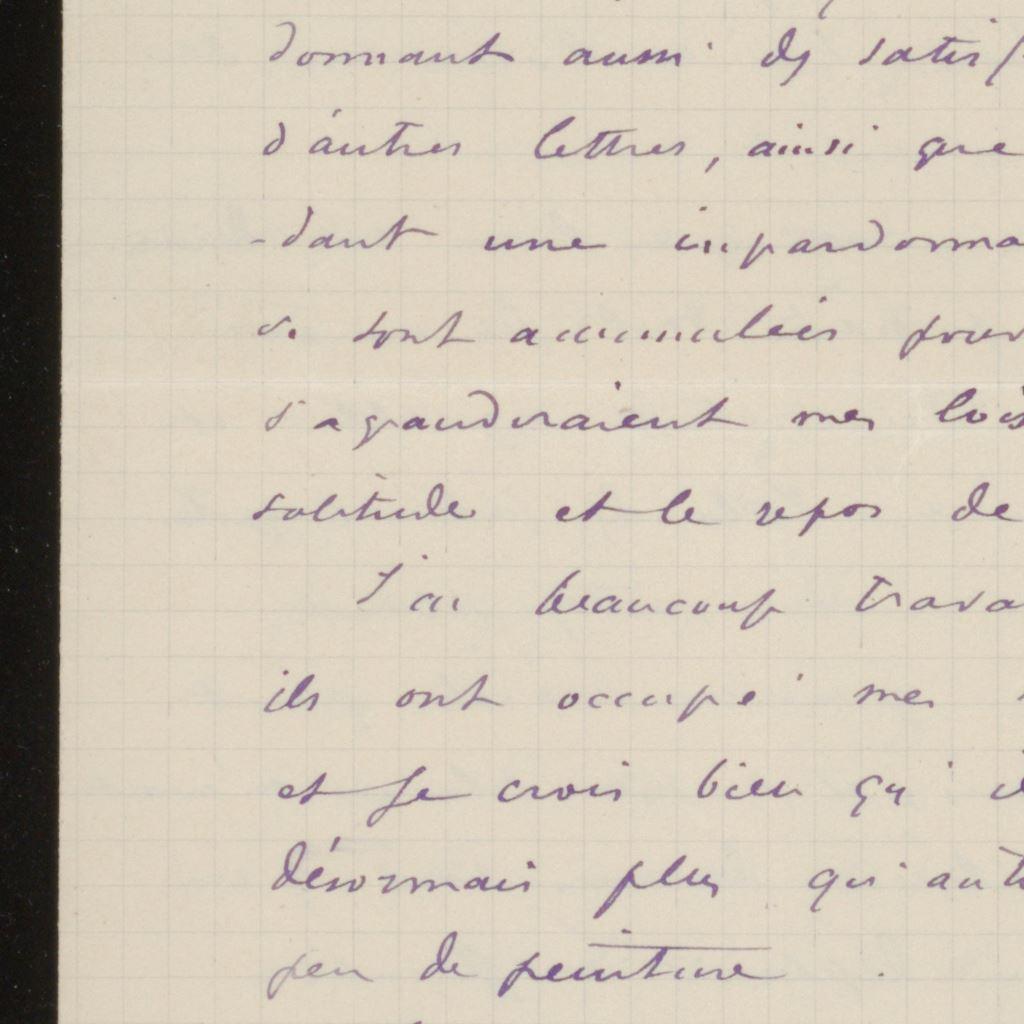 donnant aussi des satisf
d'autres lettres, ainsi que
-dant une impardonna
se sont accumulées pour
s'agrandiraient mes lois
solitude et le repos de
J'ai beaucoup trava
ils ont occupé mes
et je crois bien qu'i
désormais plus qu'aut
peu de peinture.